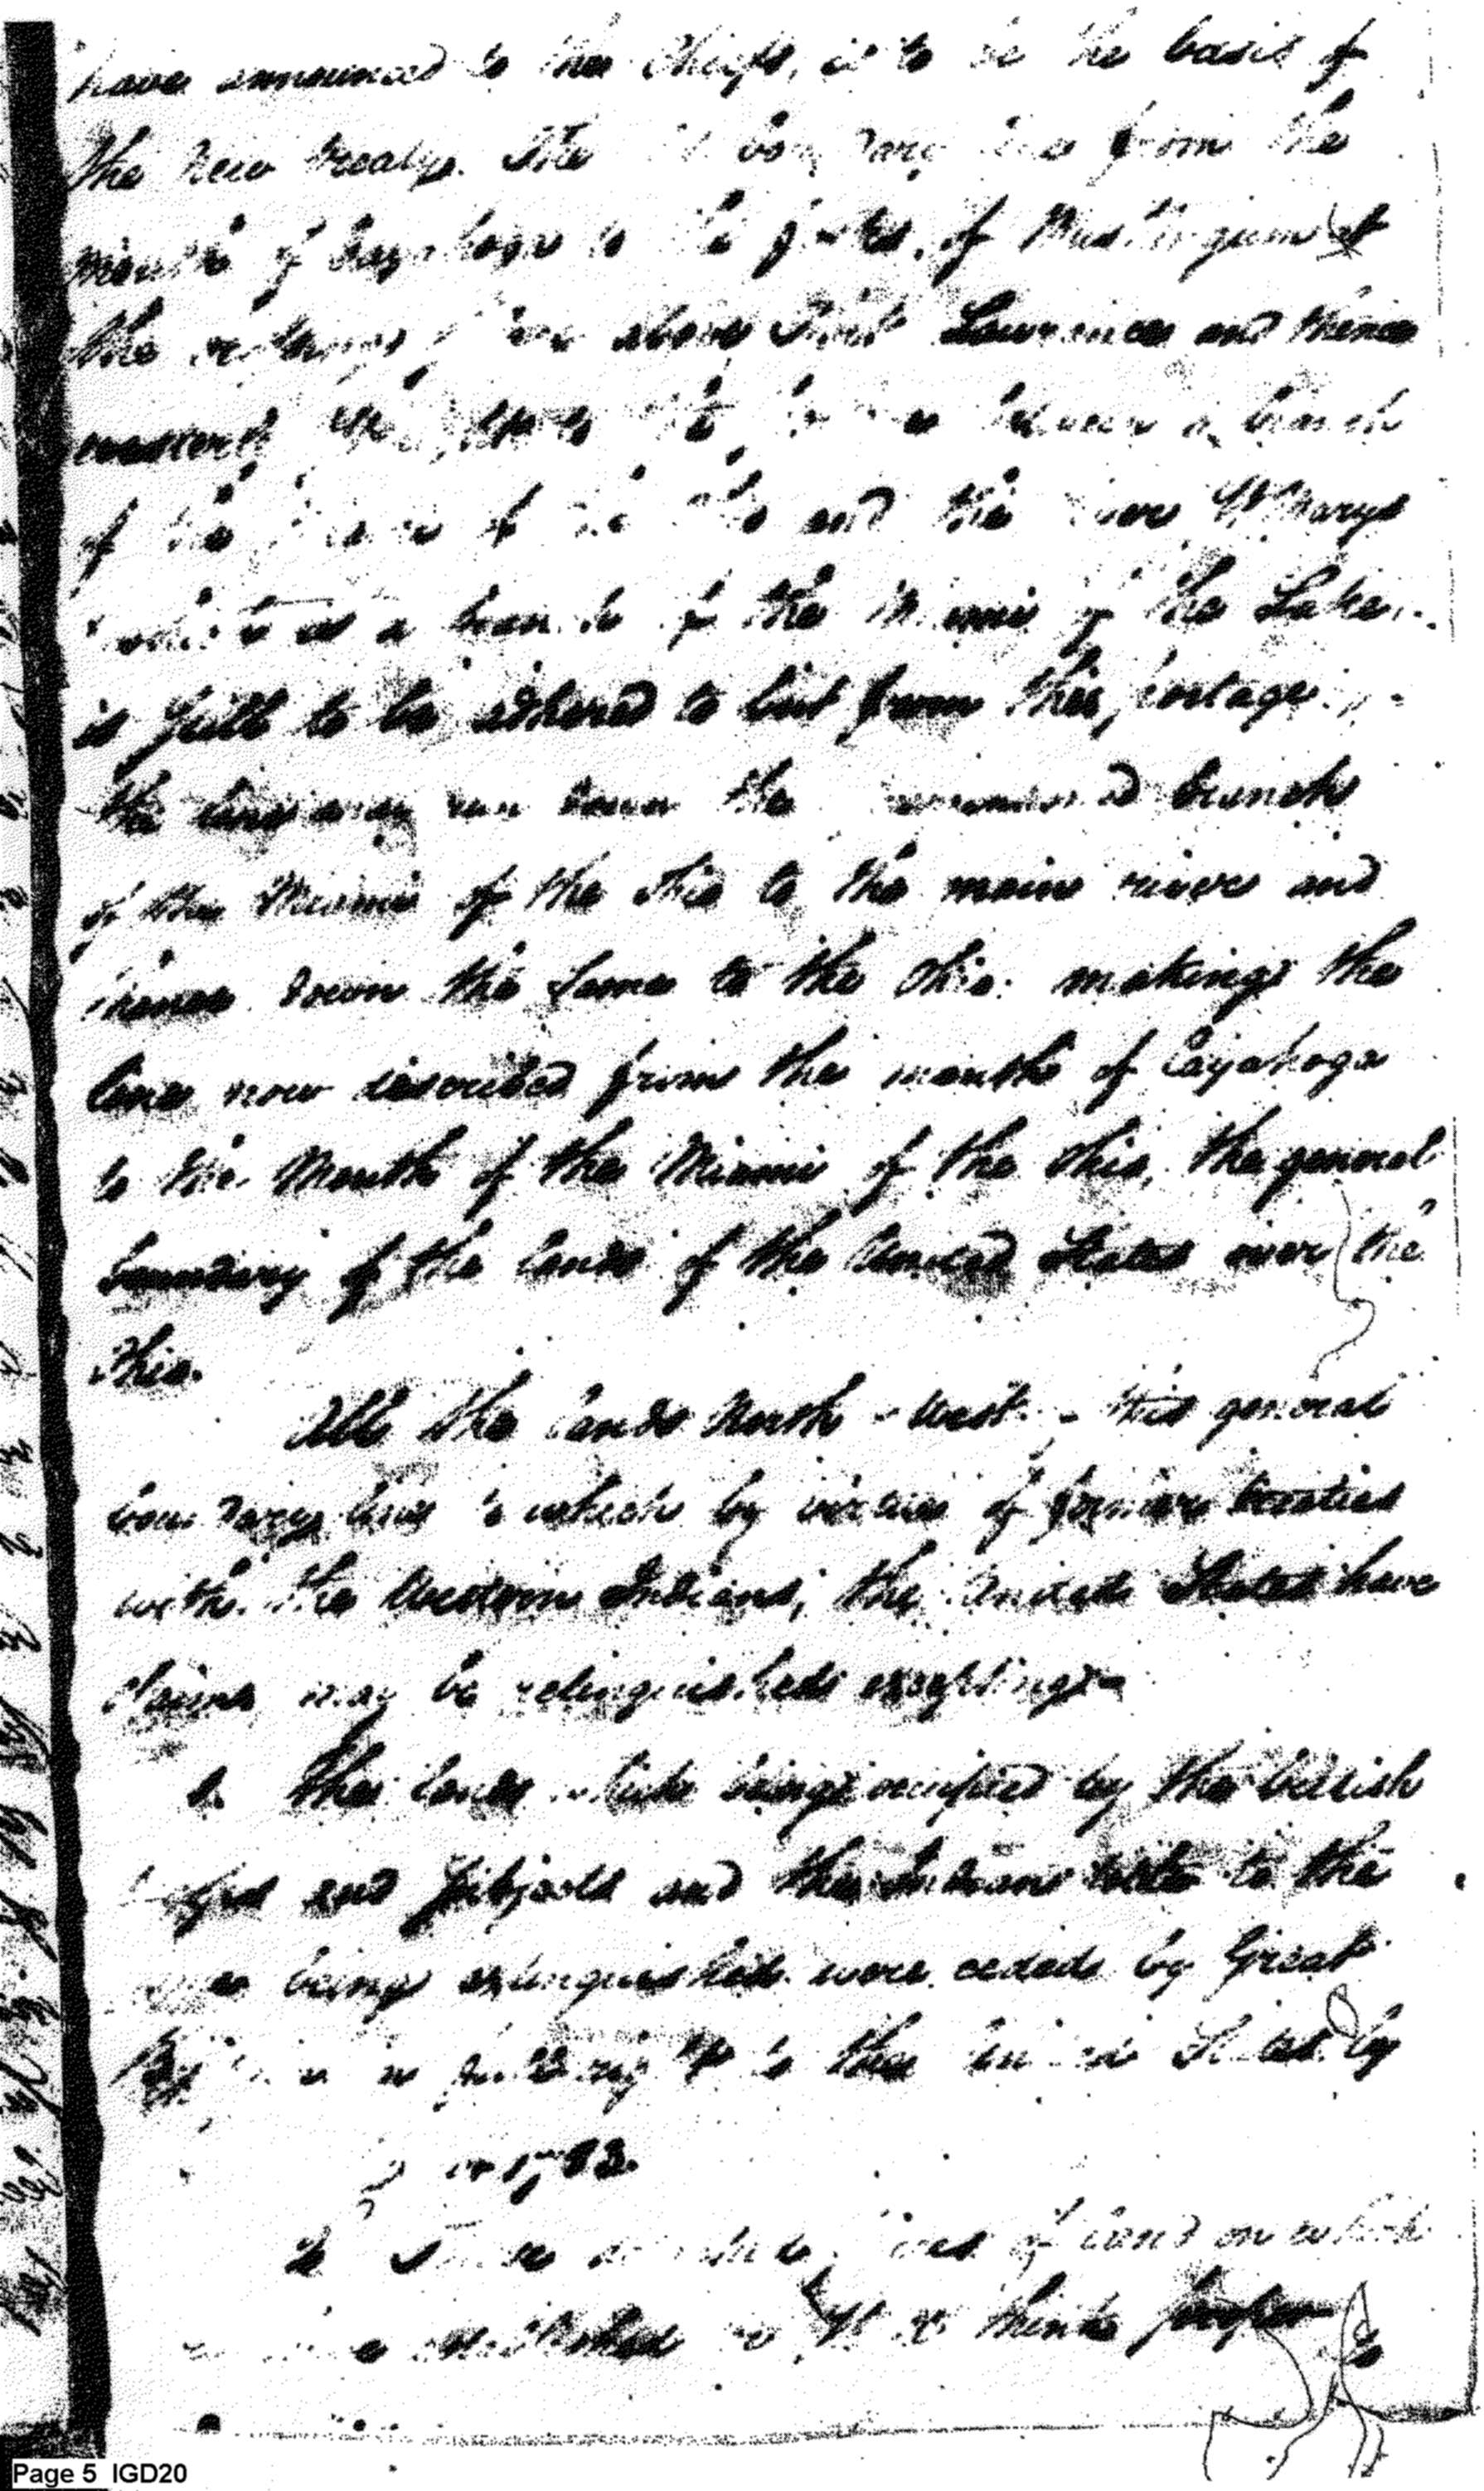 have announced to the Chiefs, is to be the basis of
the new treaty. The boundary line from the
mouth of Cayahoga to the forks of Muskingum at
the crossing place above Fort Lawrence and thence
westerly to the between a branch
of the Miami of the Ohio and the river St Marys
which is a branch of the Miami of the Lake
is still to be adhered to but from this portage
the line may run down the branch
of the Miami of the Ohio to the main river and
thence down the same to the Ohio: making the
line now described from the mouth of Cayahoga
to the Mouth of the Miami of the Ohio, the general
boundary of the lands of the United States over the
Ohio.
All the lands North West this general
boundary line to which by virtue of former treaties
with the Western Indians, the United States have
claims may be relinquished excepting
1. The lands which being occupied by the british
and subjects and the Indian title to the
same being extinguished were ceded by Great
Britain in full right to the United States by
1783.
2 of land on which
established or think proper to
Page 5 IGD20